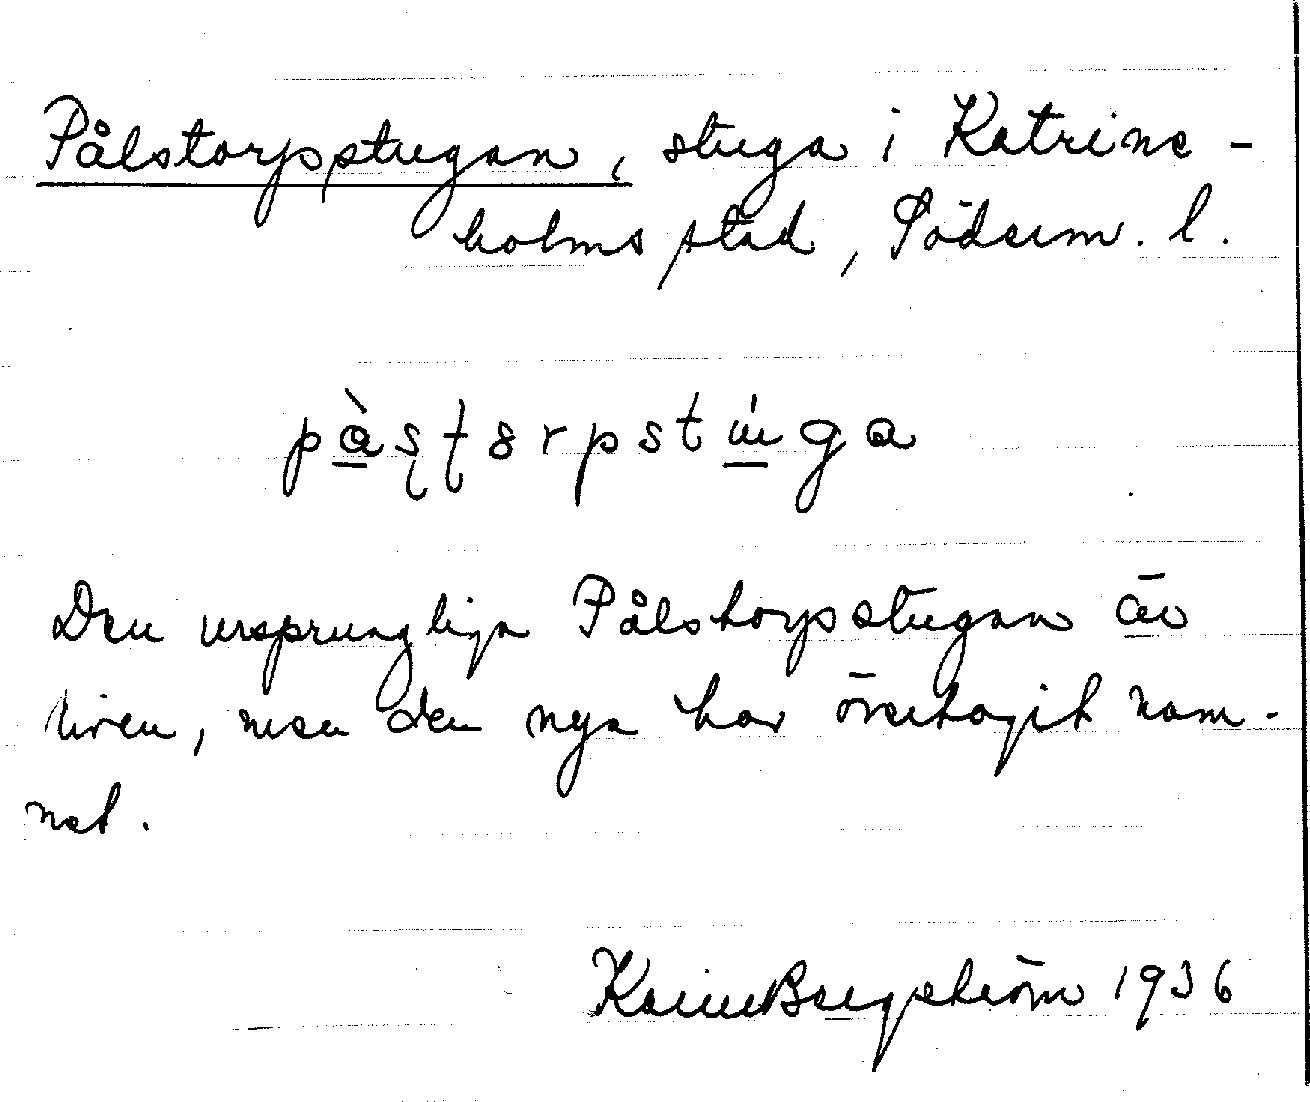 Pålstorpsstugan, stuga i Katrine-
holms stad, Söderm. l.
Den ursprungliga Pålstorpsstugan är
riven, men den nya har övertagit nam-
net.
Karin Bergström 1936